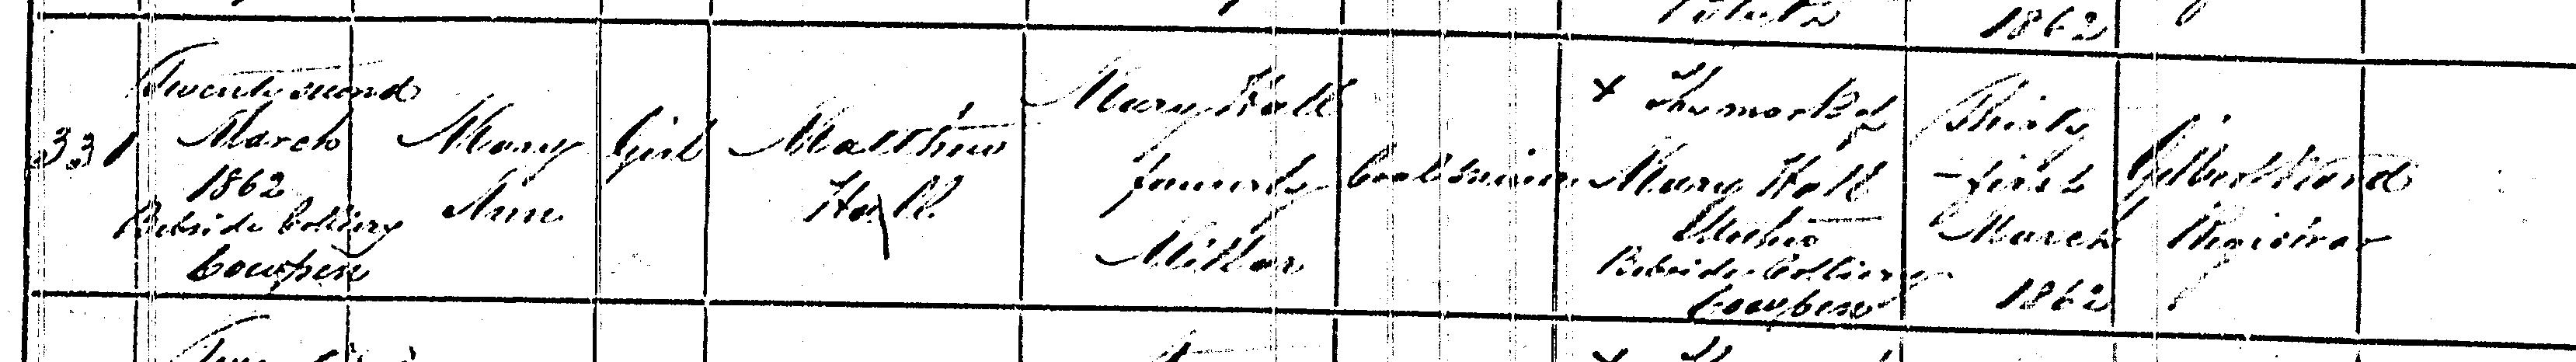 1862
331
Twenty second
March
1862
Bebside Colliery
Cowpen
Mary
Ann
Girl
Matthew
Hall
Mary Hall
formerly
Millar
Coal miner
X The mark of
Mary Hall
Mother
Bebside Colliery
Cowpen
Thirty
-first
March
1862
Gilbert Ward
Registrar